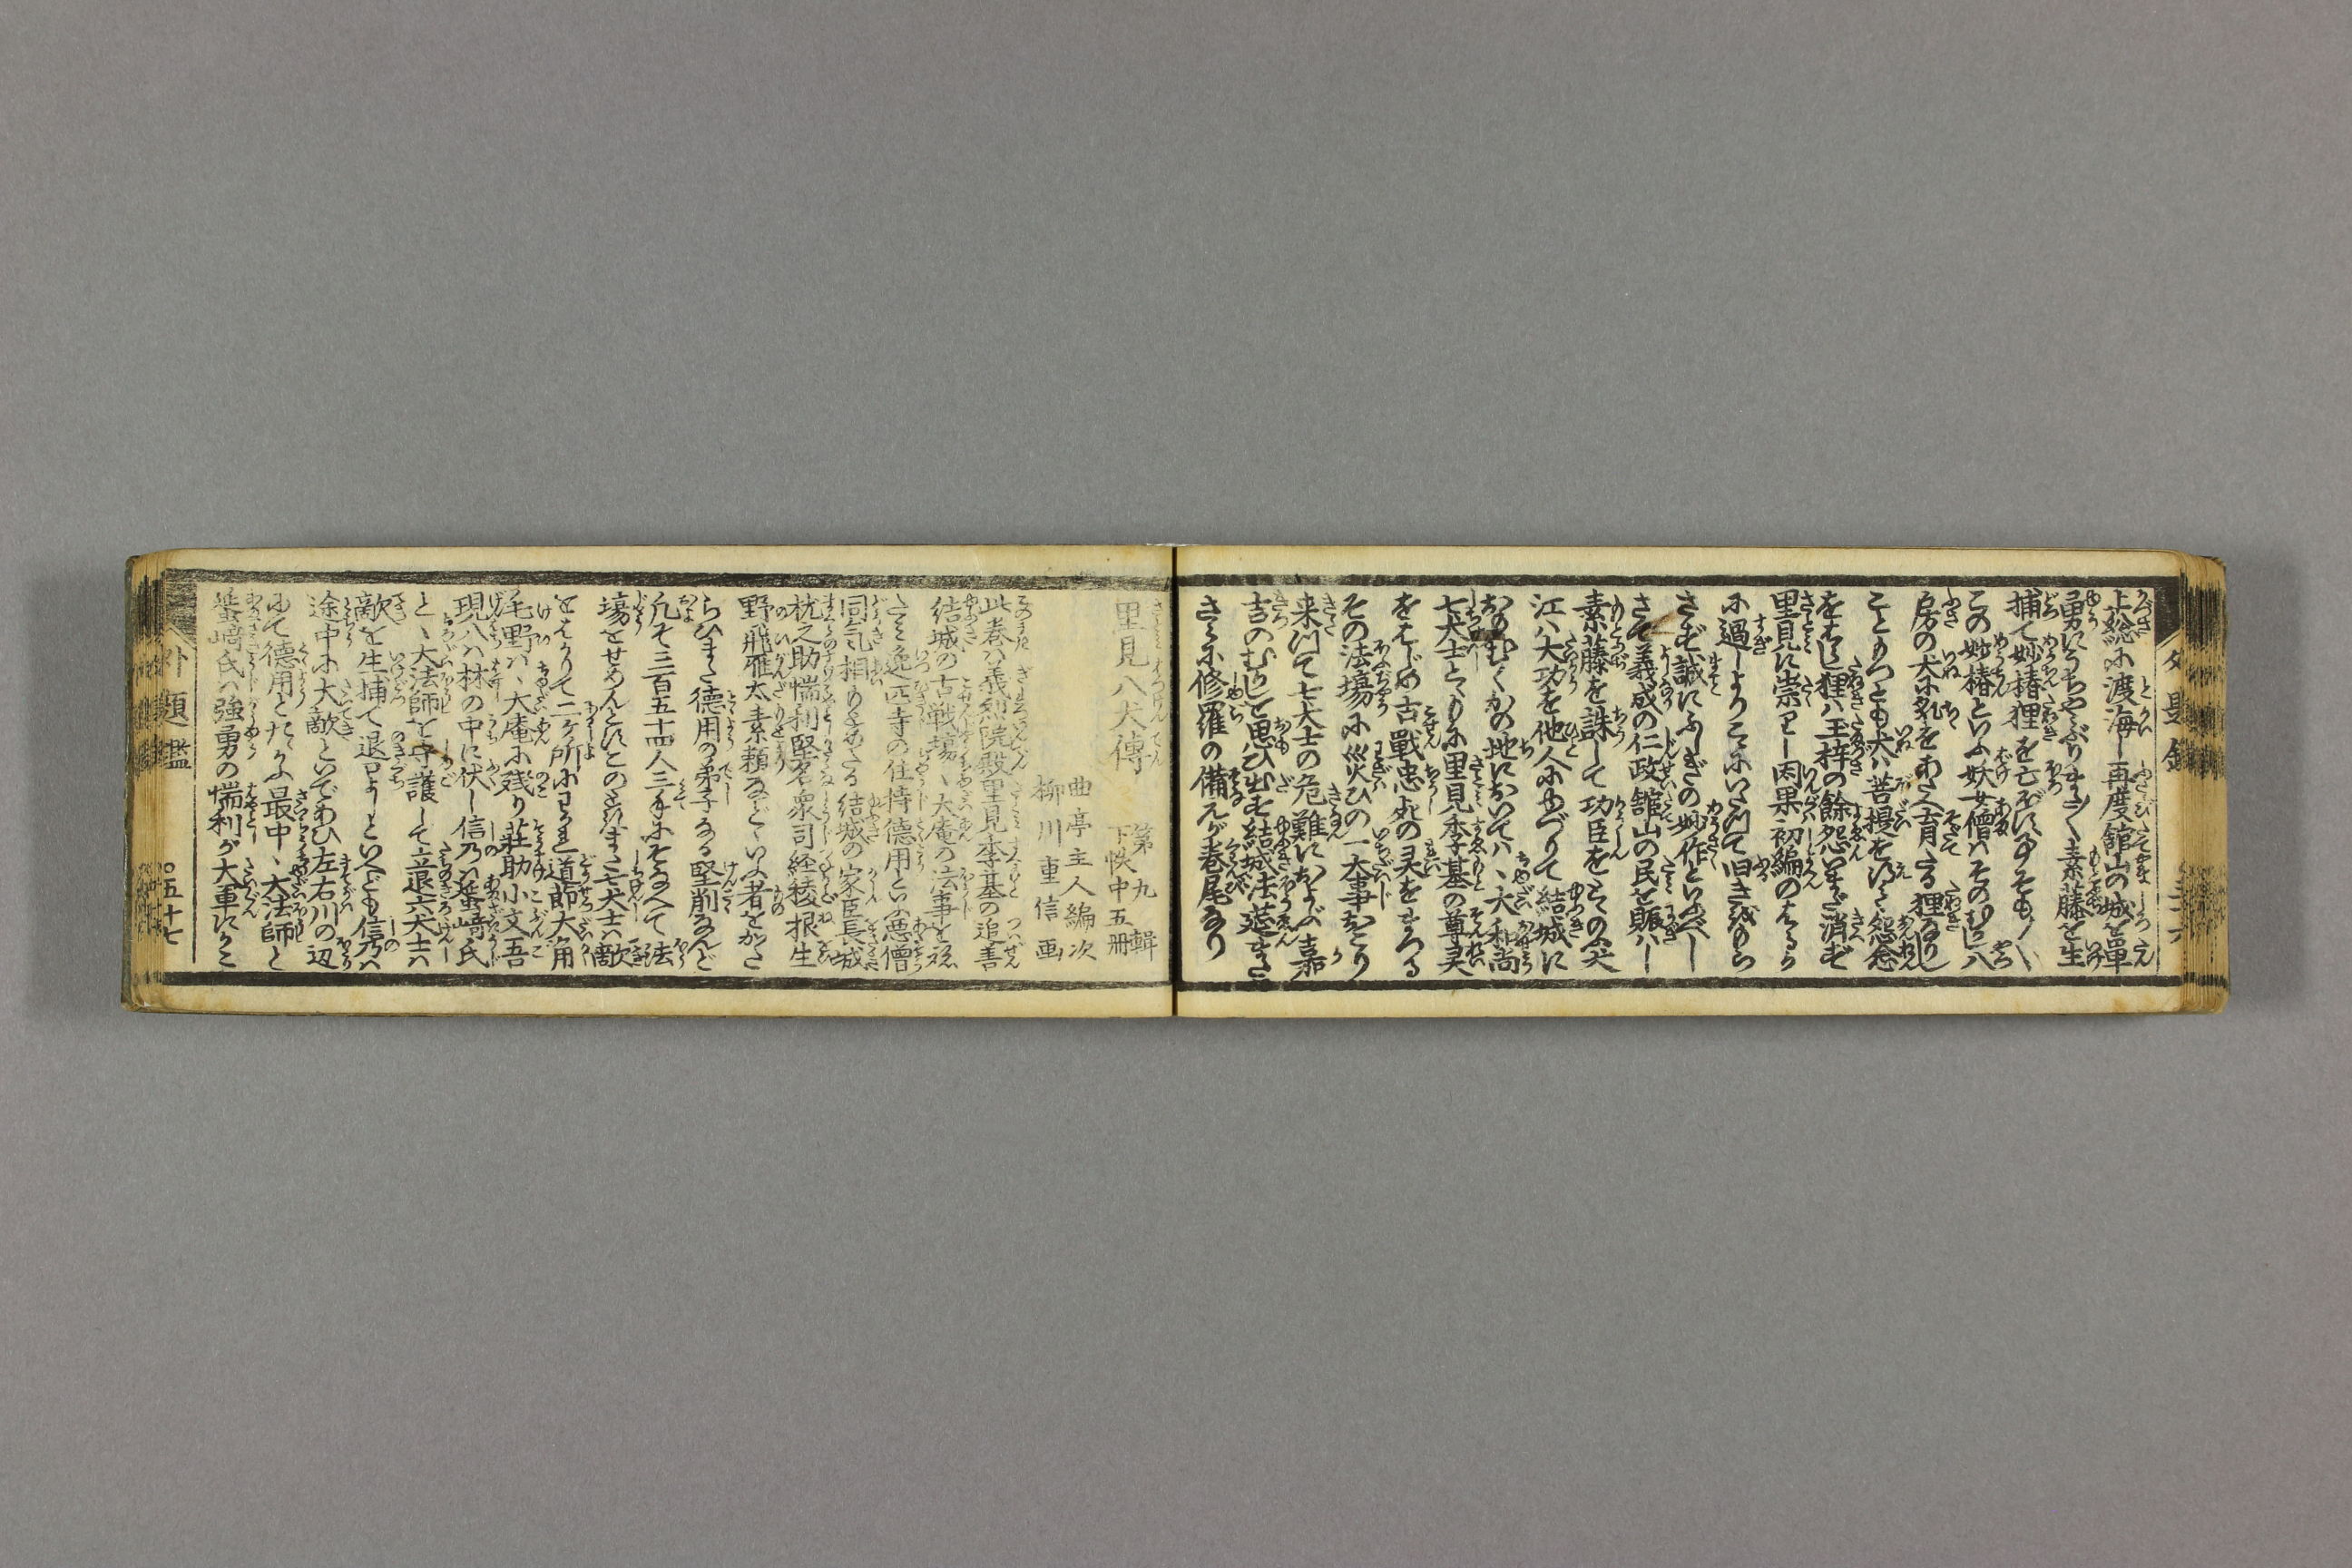 上総に渡海し再度館山の城を単
勇にうちやぶりまさしく素藤を生
捕て妙椿狸を亡ぼすそも〳〵
この妙椿といふ妖女僧はそのむかし八
房の犬に乳をあたへ育たる狸なりし
ことなれども犬は菩提を得て怨念
をはらし狸は玉梓の餘怨いまだ消ず
里見に祟りし因果初編のはじめ
に過しよりこゝにいたつて旧き
さず誠にふしぎの妙作といふべし
さて義成の仁政舘山の民を賑はし
素藤を誅して功臣を
江ハ大功を他人にゆづりて結城に
おもむくかの地においてハヽ大和尚
七犬士とともに里見季基の尊灵
をはじめ古戰忠死の灵をまつる
その法場に災ひの一大事おこり
来つて七犬士の危難におよぶ嘉
吉のむかしを思ひ出す結城法莚また
さらに修羅の備えが巻尾なり
里見八犬傳 第九輯 下帙中五冊
曲亭主人編次
柳川重信画
此巻ハ義烈院殿里見季基の追善
結城の古戦場ヽ大庵の法事を
さゝえ逸匹寺の住持德用といふ悪僧
同気相もとめたる結城の家臣長城
枕之助惴利堅名衆司経稜根生
野飛雁太素頼などゝいふ者をかた
らひまた德用の弟子なる堅削なんど
凡そ三百五十四人三手にそなへて法
場をせめんとすこのときまた七犬士ハ敵
をはかりて二ヶ所にわかれ道節大角
毛野ハヽ大庵に残り荘助小文吾
現八ハ林の中に伏し信乃ハ蜑﨑氏
とヽ大法師を守護して立退六犬士ハ
敵を生捕て退口よしといへども信乃ハ
途中に大敵といであひ左右川の辺
にて德用とたゝかふ最中ヽ大法師と
蜑﨑氏ハ強勇の惴利が大軍にかこ
外題鑑
五十七